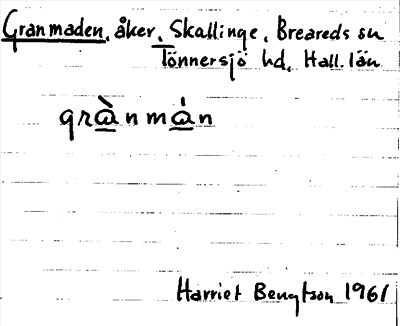 Granmaden, åker, Skallinge, Breareds sn
Tönnersjö hd, Hall. län
grànmán
Harriet Bengtson 1961